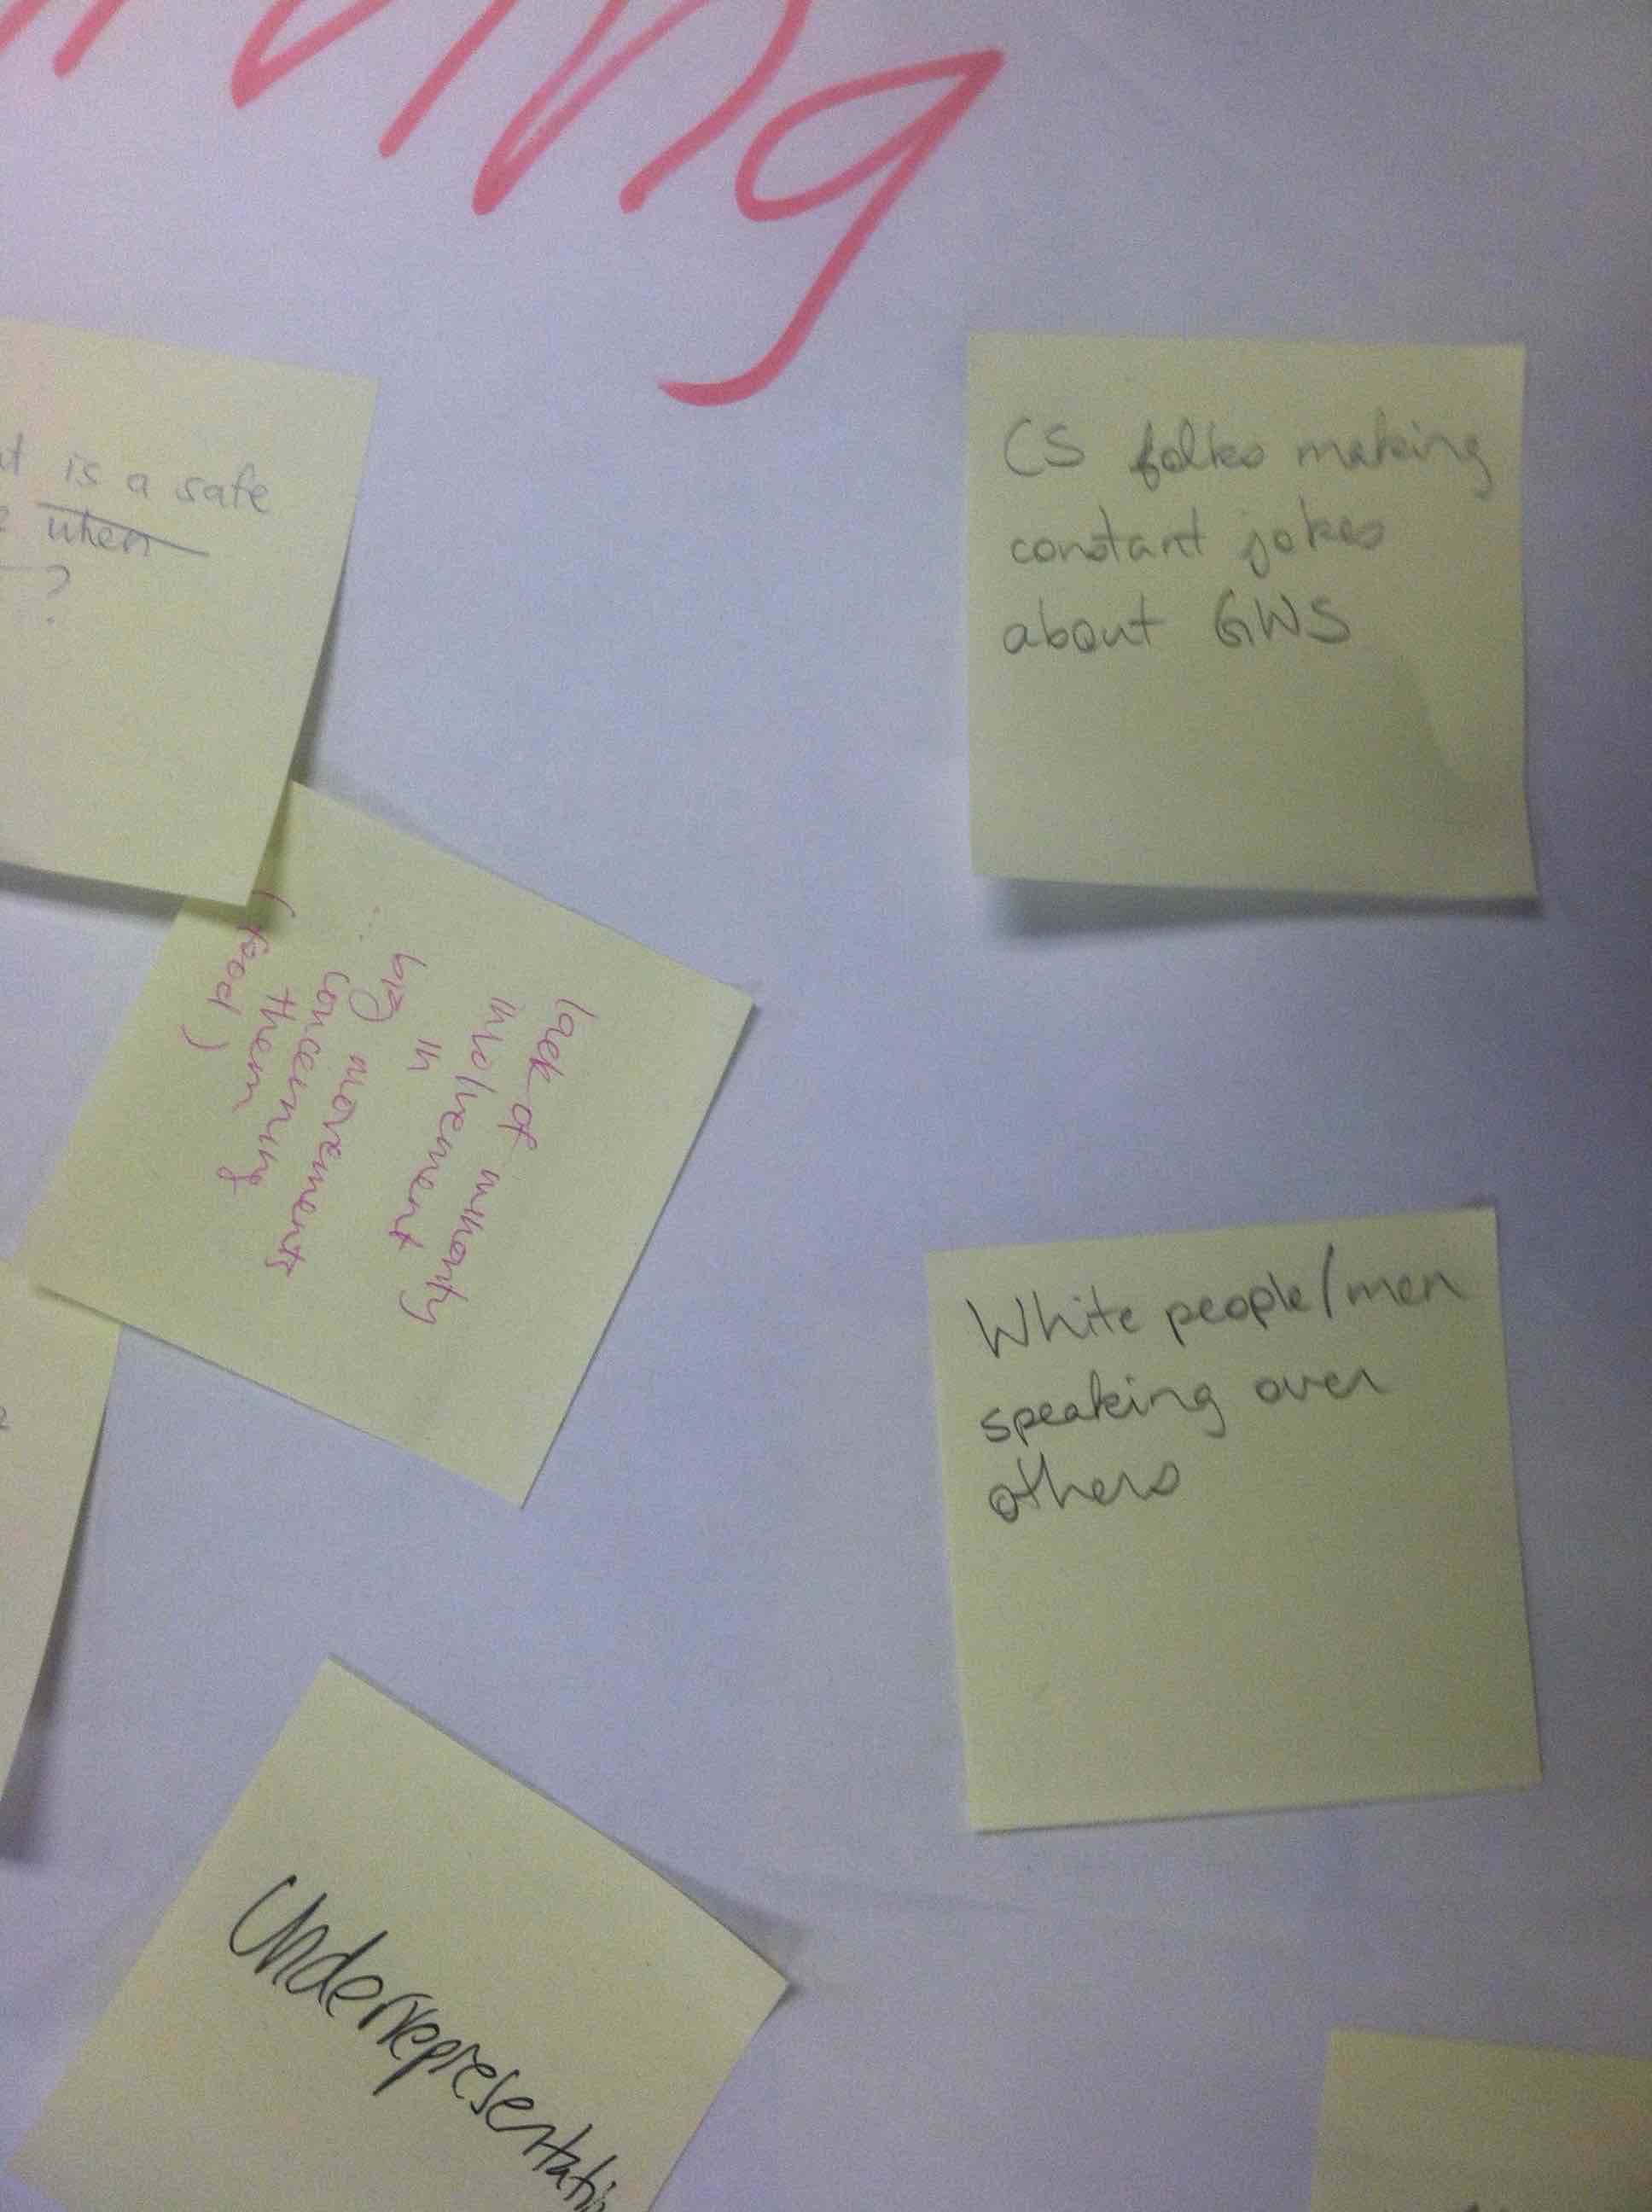 is a safe
when
?
CS folks making
constant jokes
about GWS
lack of minority
involvement
in
big movements
concerning
them
(food)
...
White people/men
speaking over
others
Underrepresentatio